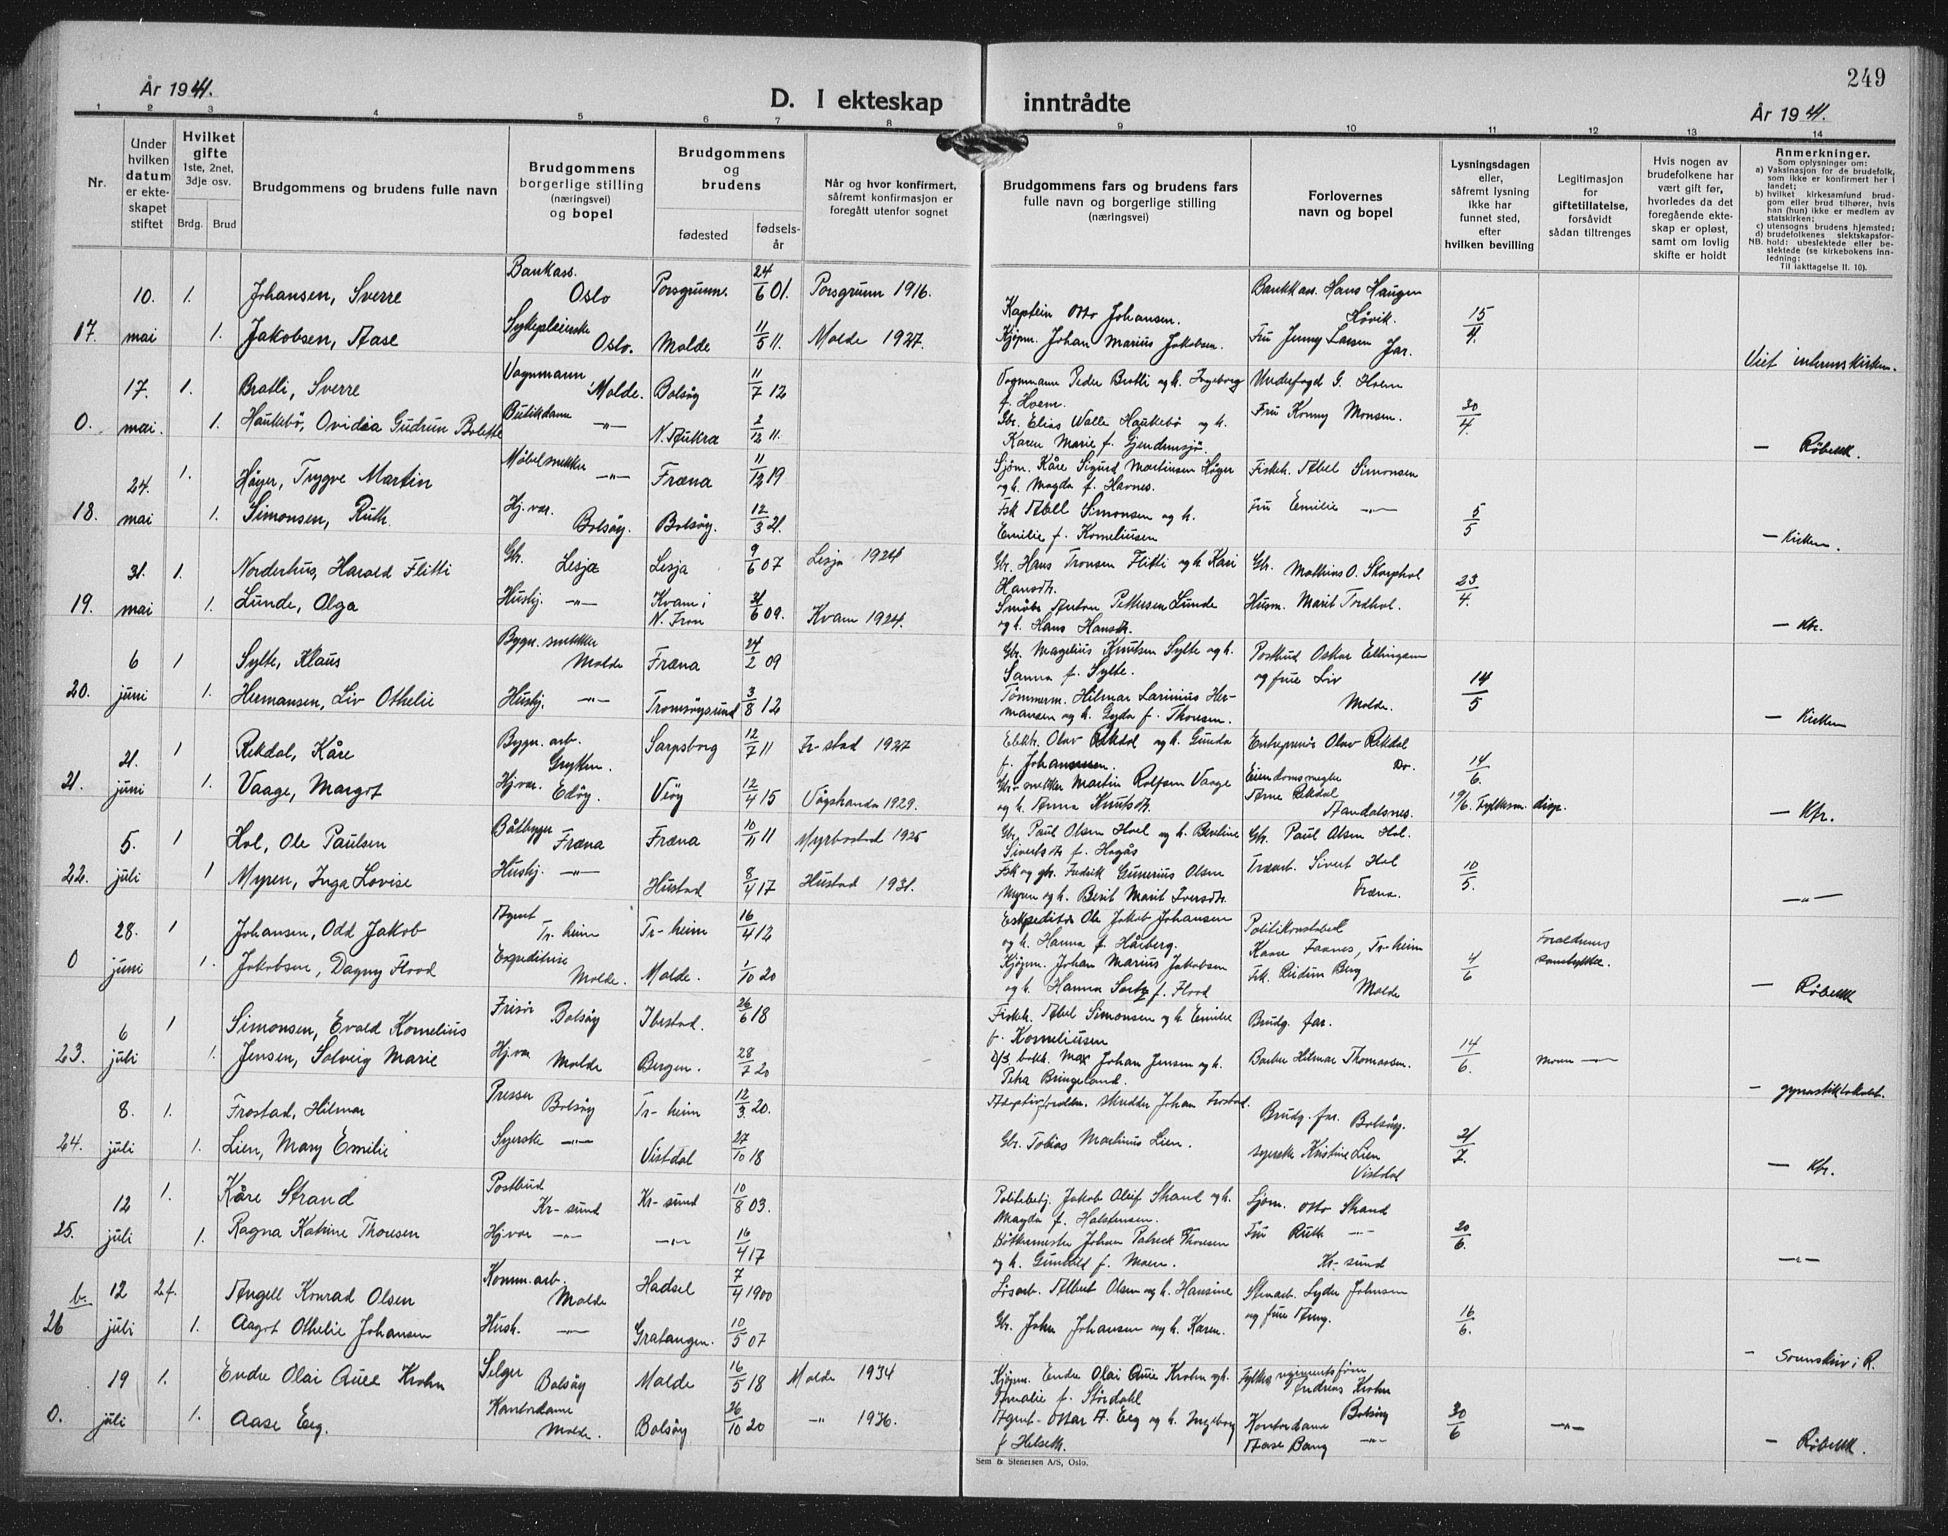 År 1941.
D. I ekteskap inntrådte
249
År 1941.
1 2 3 4 5 6 7 8 9 10 11 12 13 14
Nr.
Under hvilken datum er ekteskapet stiftet
Hvilket gifte 1ste, 2net, 3dje osv.
Brdg. Brud
Brudgommens og brudens fulle navn
Brudgommens borgerlige stilling (næringsvei) og bopel
Brudgommens og brudens
fødested
fødselsår
Når og hvor konfirmert, såfremt konfirmasjon er foregått utenfor sognet
Brudgommens fars og brudens fars fulle navn og borgerlige stilling (næringsvei)
Forlovernes navn og bopel
Lysningsdagen eller, såfremt lysning ikke har funnet sted, efter hvilken bevilling
Legitimasjon for giftetillatelse, forsåvidt sådan tiltrenges
Hvis nogen av brudefolkene har vært gift før, hvorledes da det foregående ekteskap er opløst, samt om lovlig skifte er holdt
Anmerkninger.
Som oplysninger om:
a) Vaksinasjon for de brudefolk, som ikke er konfirmert her i landet;
b) hvilket kirkesamfund brudgom eller brud tilhører, hvis han (hun) ikke er medlem av statskirken;
c) utensogns brudens hjemsted;
d) brudefolkenes slektskapsforhold: ubeslektede eller beslektede (se kirkebokens innledning:
NB.
Til iakttagelse II. 10).
10. 1. Johansen, Sverre Bankass. Oslo Porsgrunn. 24/6 01. Porsgrunn 1916. Kaptein Otto Johansen. Bankkass. Hans Haugen Høvik. 15/4
17. mai 1. Jakobsen, Aase Sykepleierske Oslo. Molde 11/5 11. Molde 1927. Kjøpm. Johan Marius Jakobsen. Fru Jenny Larsen Jar. Viet interimskirken.
17. 1. Bratli, Sverre Vognmann Molde. Bolsøy 11/7 12 Vognmann Peder Bratli og h. Ingeborg f. Hoem. Underfogd G. Hoem 30/4
0. mai. 1. Haukebø, Ovidia Gudrun Bolette Butikdame —"— N. Aukra 2/12 11. Gbr. Elias Walle Haukebø og h. Karen Marie f. Gjendemsjø. Fru Konny Monsen. — Røbekk.
24. 1. Høyer, Trygve Martin Møbelsnekker —"— Fræna 11/12 19 Sjøm. Kåre Sigurd Martinsen Høyer og h. Magda f. Havnes. Fiskeh. Abel Simonsen 5/5
18. mai 1. Simonsen, Ruth. Hj. vær. Bolsøy. Bolsøy. 12/3 21. Fsk Abel Simonsen og h. Emilie f. Korneliusen Fru Emilie —"— — Kirken.
31. 1. Norderhus, Harald Flitti Gbr. Lesja Lesja 9/6 07 Lesja 1924 Gbr. Hans Tronsen Flitti og h. Kari Hansdtr. Gbr. Mathias O. Skarphol 23/4.
19. mai 1. Lunde, Olga Hushj. —"— Kvam i N. Fron 21/6 09. Kvam 1924. Småbr. Anton Pettersen Lunde og h. Hans Hansdtr. Husm. Marit Tordhol. — Kfr.
6 1 Sylte, Klaus Bygn. snekker Molde Fræna 24/2 09 Gbr. Magelius Knutsen Sylte og h. Sanna f. Sylte. Postbud Oskar Ellingsen og frue Liv Molde. 14/5
20. juni 1. Hermansen, Liv Othelie Hushj. —"— Tromsøysund 3/8 12 Tømmerm. Hilmar Larinius Hermansen og h. Gyda f. Thoresen. — Kirken
21. 1 Rekdal, Kåre Bygn. arb. Gryten. Sarpsborg 12/7 11 Fr-stad 1927 Elektr. Olav Rekdal og h. Gunda f. Johannesen. Entreprenør Olav Rekdal Do. 14/6.
21. juni 1. Vaage, Margot Hj.vær. Edøy. Veøy 12/4 15 Vågstranda 1929. Gbr. snekker Martin Rolfsen Vaage og h. Anna Knutsdtr. Eiendomsmegler Arne Rekdal Aandalsnes. 19/6. Fylkesm. disp. — Kfr.
5. 1 Hol, Ole Paulsen Båtbygger Fræna Fræna 10/11 11 Myrbostad 1925 Gbr. Paul Olsen Hoel og h. Beretine Sivertsdtr f. Hagås Gbr. Paul Olsen Hol. 10/5.
22. juli 1 Myren, Inga Lovise Hushj. —"— Hustad 8/4 17 Hustad 1931. Fsk og gbr. Fredrik Gunerius Olsen Myren og h. Berit Marit Iversdtr. Trearb. Sivert Hol Fræna. —"—
28. 1 Johansen, Odd Jakob Agent Tr-heim Tr-heim 16/4 12 Ekspeditør Ole Jakob Johansen og h. Hanna f. Hårberg. Politikonstabel Kaare Faanes, Tr-heim 4/6 Foreldrenes samtykke.
0 juni 1. Jakobsen, Dagny Flood Expeditrise Molde. Molde. 1/10 20 Kjøpm. Johan Marius Jakobsen og h. Hanna f. Flood Frk. Reidun Berg Molde — Røbekk
6 1 Simonsen, Evald Kornelius Frisør Bolsøy Ibestad. 26/6 18 Fiskeh. Abel Simonsen og h. Emilie f. Korneliusen Brudg. far. 14/6.
23. juli 1. Jensen, Solveig Marie Hj.vær Molde Bergen. 28/7 20 D/S bokh. Max Johan Jensen og h. Petra Bringeland. Barber Hilmar Thomassen. Moren —"— — gymnastiklokalet.
8. 1. Frostad, Hilmar Presser Bolsøy Tr-heim 12/3 20. Adoptivforeldre. skredder Johan Frostad. Brudg. far. Bolsøy. 21/7.
24. juli 1. Lien, Mary Emilie Syerske —"— Vistdal 27/10 18 Gbr. Tobias Martinus Lien. syerske Kristine Lien Vistdal — Kfr.
12 1. Kåre Strand Postbud Kr-sund Kr-sund 10/8 03. Politibetj. Jakob Oluf Strand og h. Magda f. Halstensen. Sjøm. Otto Strand 20/6.
25. juli 1. Ragna Katrine Thoresen Hjvær —"— —"— 16/4 17 Bøttkermester Johan Patrick Thoresen og h. Gunhild f. Moen. Fru Ruth —"— Kr-sund —"—
b. 12 2f. Angell Konrad Olsen Komm. arb. Molde Hadsel 7/4 1900 Løsarb. Albert Olsen og h. Hansine Stenarb. Lyder Johnsen og frue Anny. 16/6.
26 juli 1. Aagot Othelie Johansen Hush. —"— Gratangen. 10/5 07 Gbr. John Johansen og h. Karen. — Sorenskriv i R.
19 1. Endre Olai Aure Krohn Selger Bolsøy Molde 16/5 18 Molde 1934 Kjøpm. Endre Olai Aure Krohn og h. Amalie f. Størdahl Fylkesregimentsførm. Andreas Krohn Bolsøy 30/6 —"—
0. juli 1. Aase Eeg. Kontordame Molde. Bolsøy 26/10 20 —"— 1936. Agent Ottar A. Eeg og h. Ingeborg f Helseth. Kontordame Aase Bang —"— — Røbekk.
Sem & Stenersen A/S, Oslo.